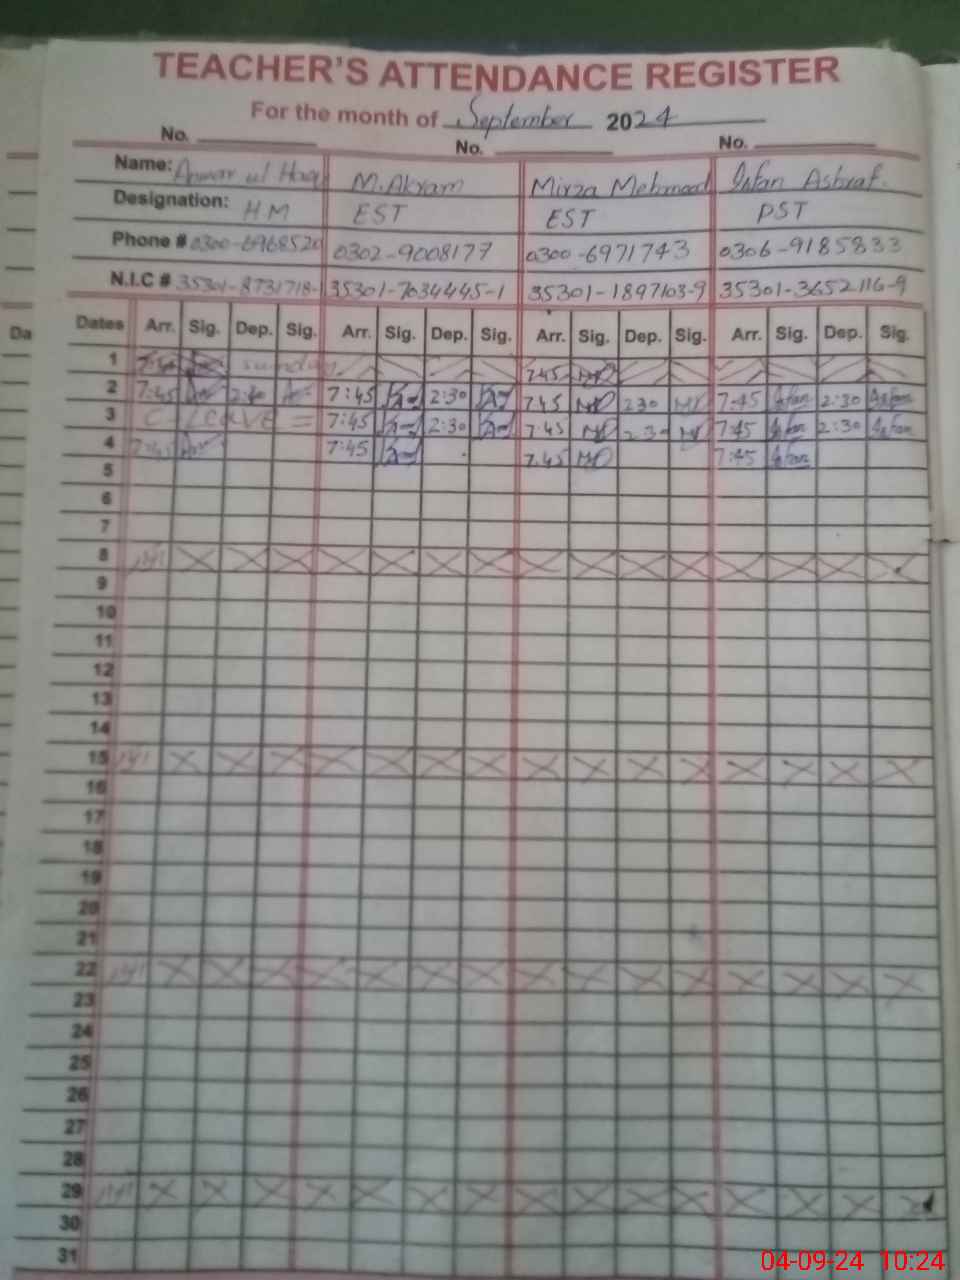 TEACHER'S ATTENDANCE REGISTER
For the month of September 2024
No. No. No.
Name: Anwar ul Haq M. Akram Mirza Mehmood Irfan Ashraf.
Designation: HM EST EST PST
Phone # 0300-6968520 0302-9008177 0300-6971743 0306-9185833
N.I.C # 35301-8731718- 35301-7034445-1 35301-1897103-9 35301-3652116-9
Dates Arr. Sig. Dep. Sig. Arr. Sig. Dep. Sig. Arr. Sig. Dep. Sig. Arr. Sig. Dep. Sig.
1 7:45 Sunday 7.45
2 7:45 2:30 7:45 2:30 7.45 230 7:45 Irfan 2:30 Irfan
3 C. Leave = 7:45 2:30 7.45 2.30 7:45 Irfan 2:30 Irfan
4 7:45 7:45 7.45 7:45 Irfan
5
6
7
8
9
10
11
12
13
14
15
16
17
18
19
20
21
22
23
24
25
26
27
28
29
30
31
Da
04-09-24 10:24